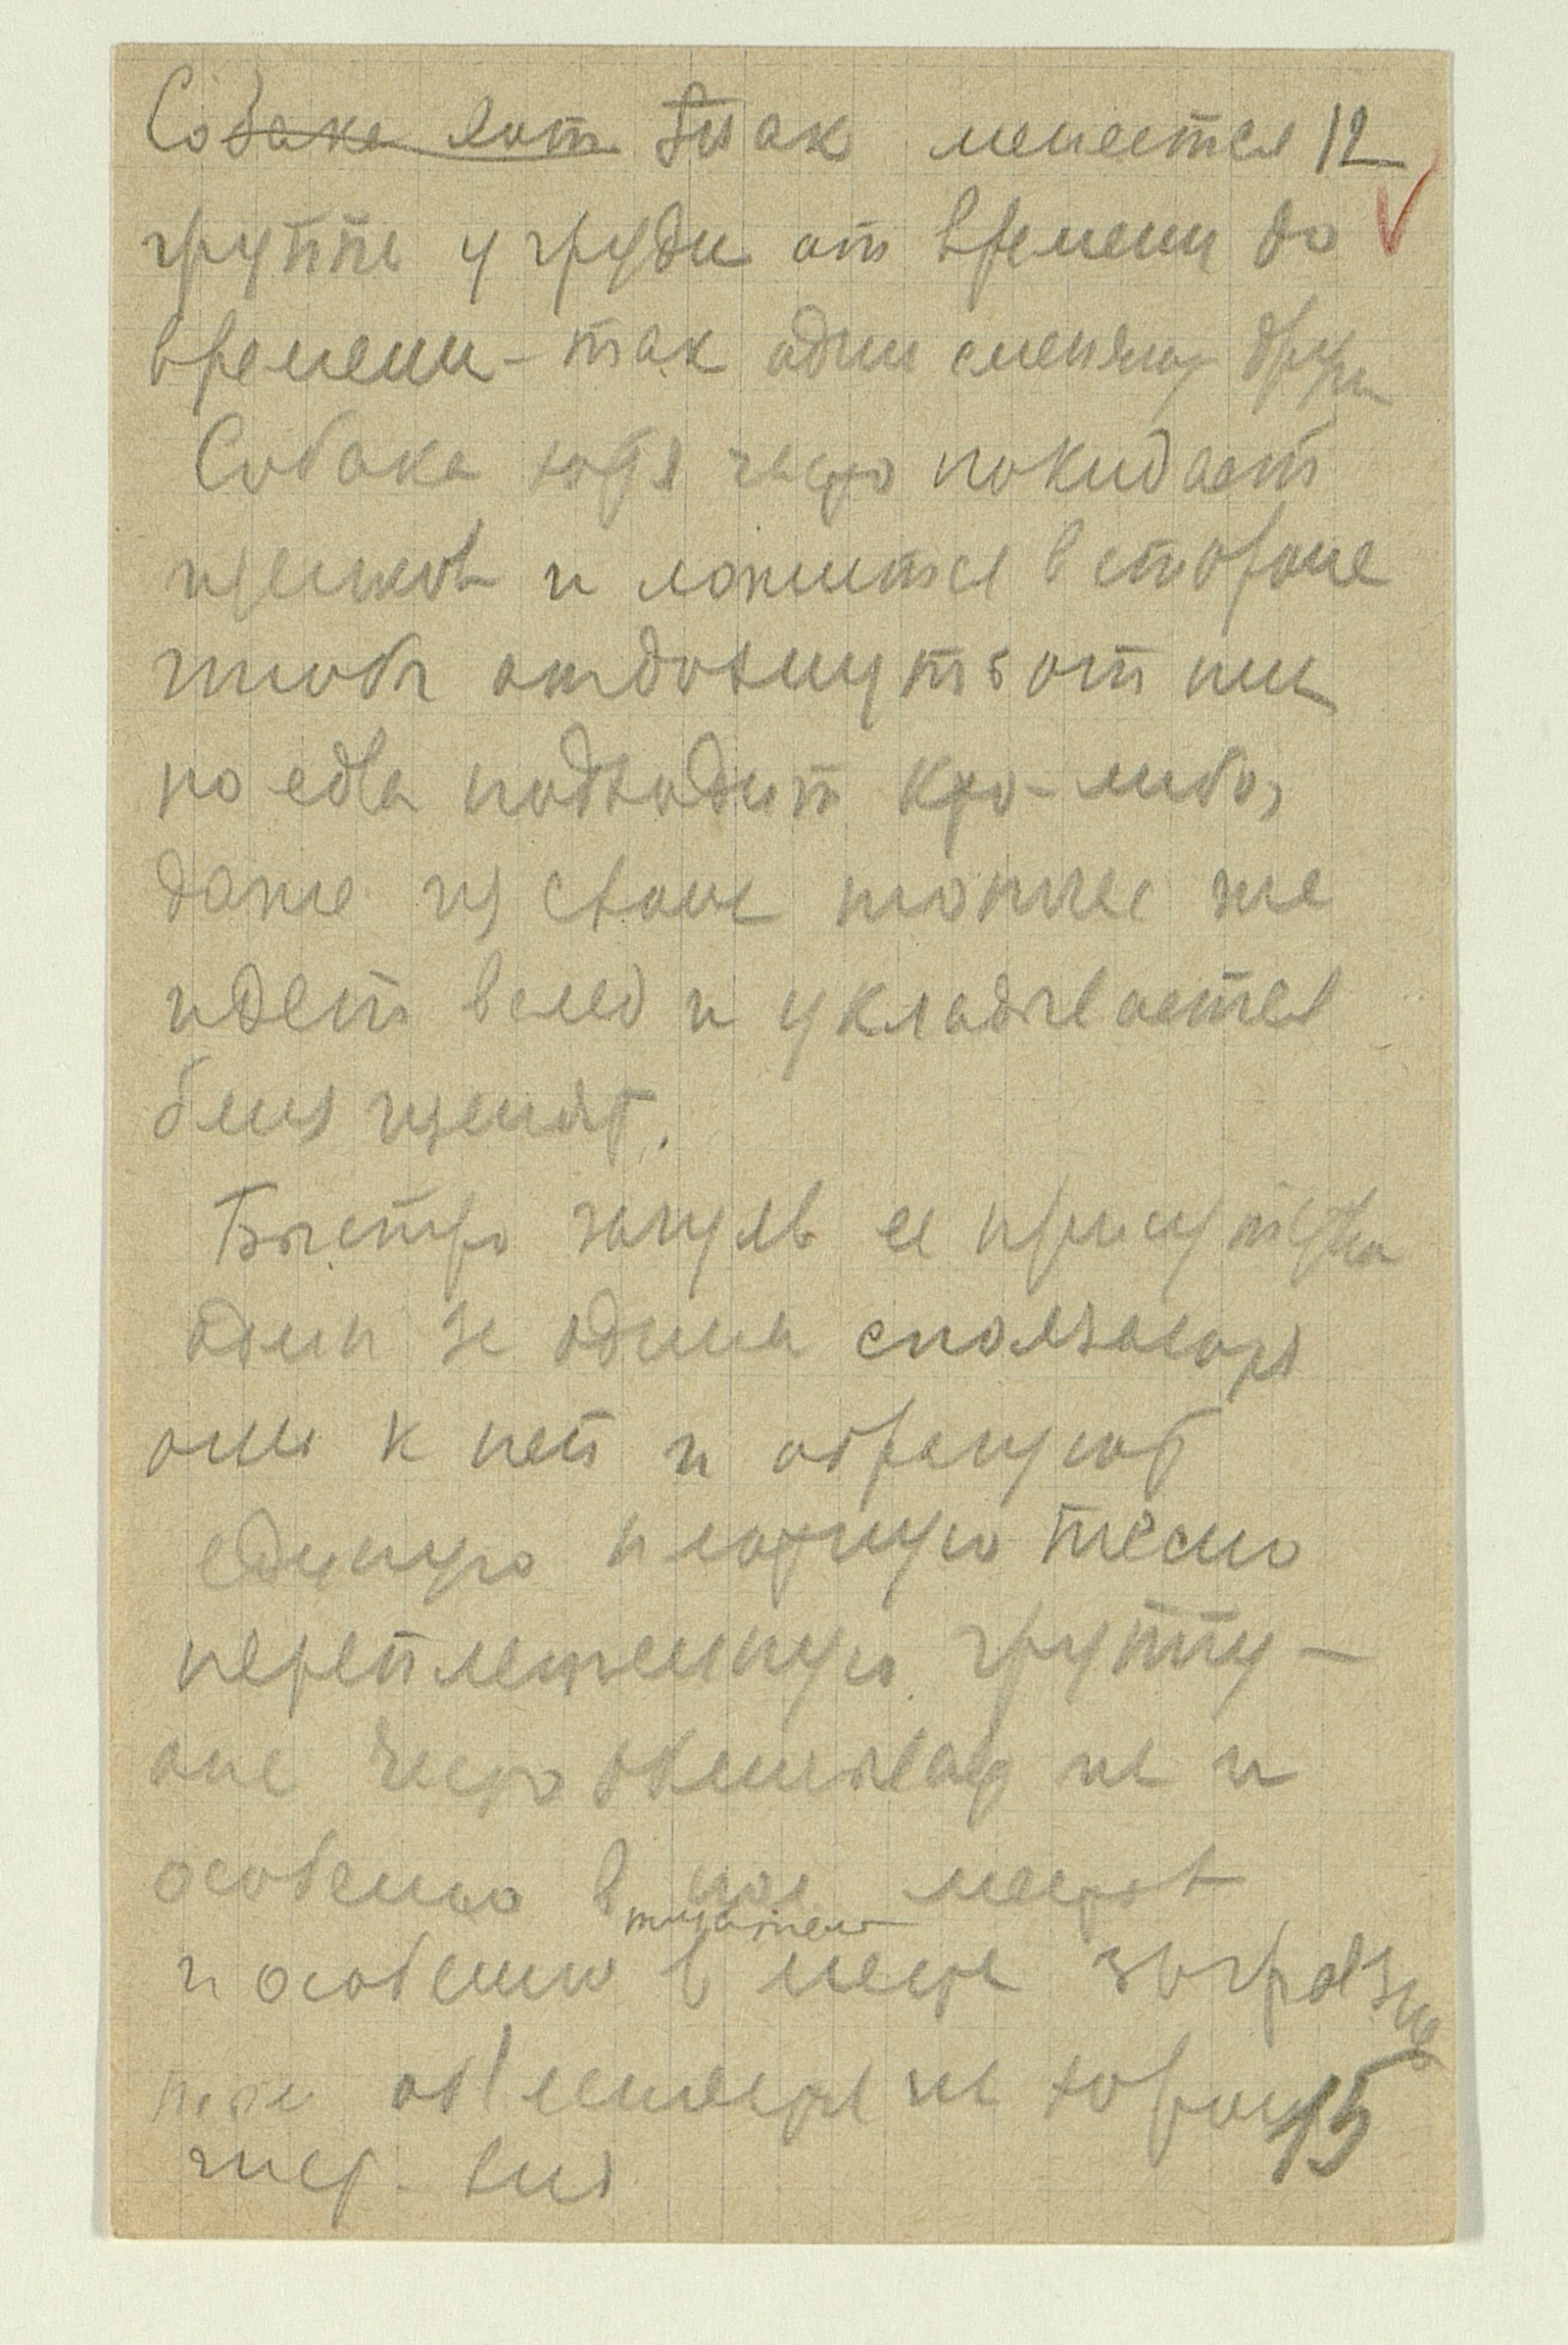 Собака хот Так меняется 12
группа у груди от времени до
времени – так одни сменяют други
Собака хотя часто покидает
щенков и ложится в стороне
чтобы отдохнуть от них
но едва подходит кто-либо,
даже из своих тотчас же
идет вслед и укладывается
близ щенят.
Быстро зачуяв ее присутствие
один за одним сползают
они к ней и образуют
единую плотную тесно
переплетенную группу –
она часто обнюхивает их и
особенно в
тщательно
и особенно в месте загрязне
не хорош
чист. вид
15